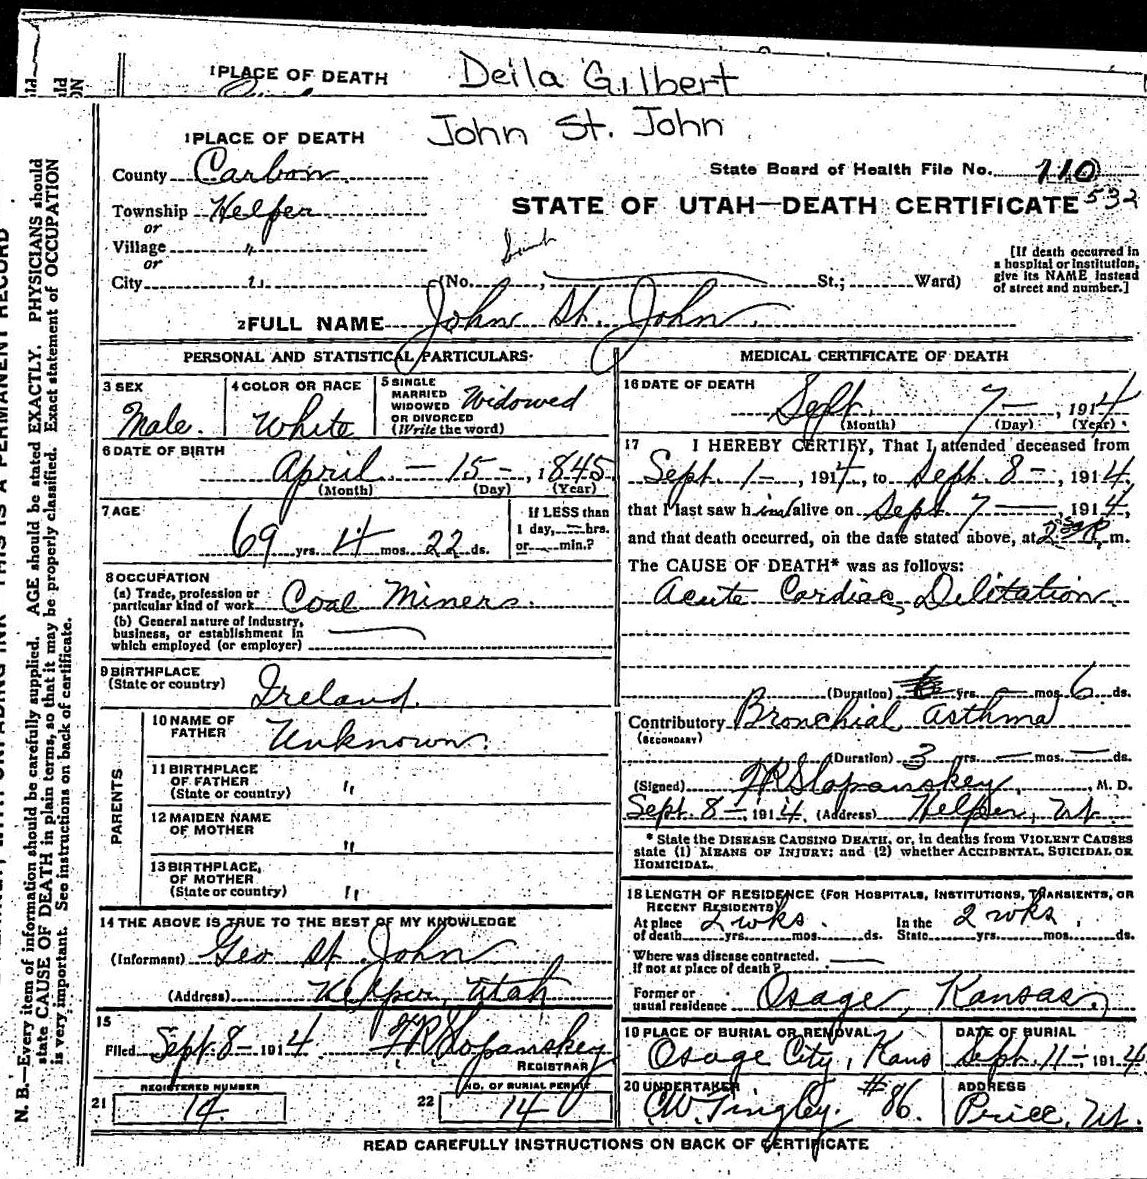 1 PLACE OF DEATH Deila Gilbert
John St. John
1 PLACE OF DEATH
County Carbon
State Board of Health File No. 110
Township Helper
STATE OF UTAH—DEATH CERTIFICATE 532
or
Village "
or
City " (No. , St.; Ward)
[If death occurred in a hospital or institution, give its NAME instead of street and number.]
2 FULL NAME John St. John
PERSONAL AND STATISTICAL PARTICULARS
3 SEX Male.
4 COLOR OR RACE White
5 SINGLE MARRIED WIDOWED OR DIVORCED (Write the word) Widowed
6 DATE OF BIRTH April — 15 —, 1845
(Month) (Day) (Year)
7 AGE 69 yrs. 4 mos. 22 ds.
If LESS than 1 day, — hrs. or min.?
8 OCCUPATION
(a) Trade, profession or particular kind of work Coal Miners.
(b) General nature of industry, business, or establishment in which employed (or employer)
9 BIRTHPLACE (State or country) Ireland.
PARENTS
10 NAME OF FATHER Unknown.
11 BIRTHPLACE OF FATHER (State or country) "
12 MAIDEN NAME OF MOTHER "
13 BIRTHPLACE, OF MOTHER (State or country) "
14 THE ABOVE IS TRUE TO THE BEST OF MY KNOWLEDGE
(Informant) Geo St. John
(Address) Helper, Utah
15
Filed Sept. 8 - 1914 REGISTRAR
REGISTERED NUMBER
21 14
NO. OF BURIAL PERMIT
22 14
MEDICAL CERTIFICATE OF DEATH
16 DATE OF DEATH
Sept. 7 —, 1914
(Month) (Day) (Year)
17 I HEREBY CERTIFY, That I attended deceased from
Sept. 1 -, 1914, to Sept. 8 -, 1914,
that I last saw him alive on Sept 7 —, 1914,
and that death occurred, on the date stated above, at m.
The CAUSE OF DEATH* was as follows:
Acute Cardiac Delitation
(Duration) yrs. — mos. 6 ds.
Contributory Bronchial asthma
(SECONDARY)
(Duration) 3 yrs. — mos. — ds.
(Signed) , M. D.
Sept. 8 -, 1914. (Address) Helper, Ut.
* State the DISEASE CAUSING DEATH, or, in deaths from VIOLENT CAUSES
state (1) MEANS OF INJURY; and (2) whether ACCIDENTAL, SUICIDAL OR
HOMICIDAL.
18 LENGTH OF RESIDENCE (FOR HOSPITALS, INSTITUTIONS, TRANSIENTS, OR
RECENT RESIDENTS)
At place of death 2 wks. yrs. mos. ds. In the State 2 wks yrs. mos. ds.
Where was disease contracted. —
If not at place of death?
Former or usual residence Osage, Kansas.
19 PLACE OF BURIAL OR REMOVAL Osage City, Kans
DATE OF BURIAL Sept. 11 -, 1914
20 UNDERTAKER C.W. Tingley. #86.
ADDRESS Price, Ut.
READ CAREFULLY INSTRUCTIONS ON BACK OF CERTIFICATE
N. B.—Every item of information should be carefully supplied. AGE should be stated EXACTLY. PHYSICIANS should
state CAUSE OF DEATH in plain terms, so that it may be properly classified. Exact statement of OCCUPATION
is very important. See instructions on back of certificate.
THIS IS A PERMANENT RECORD